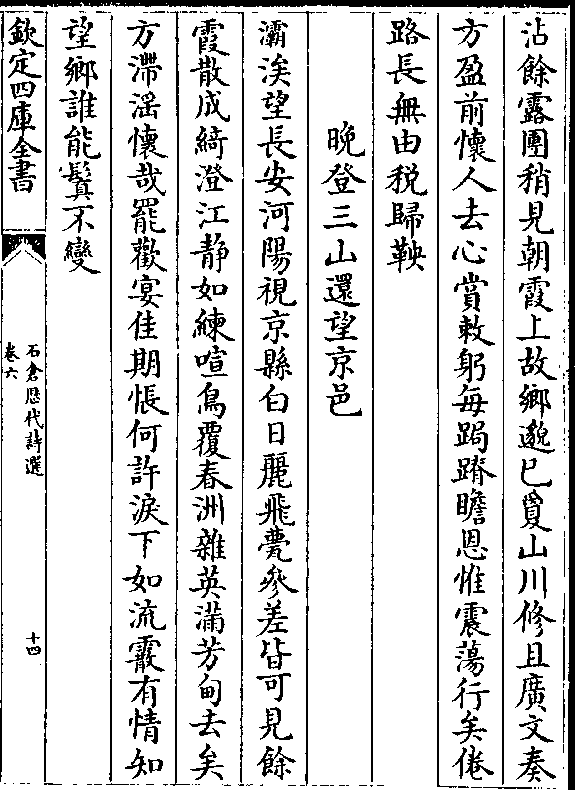 沾餘露團稍見朝霞上故鄉邈已夐山川修且廣文奏
方盈前懷人去心賞敕躬每跼蹐瞻恩惟震蕩行矣倦
路長無由税歸鞅
晚登三山還望京邑
灞涘望長安河陽視京縣白日麗飛甍參差皆可見餘
霞散成綺澄江静如練喧鳥覆春洲雜英滿芳甸去矣
方滯滛懷哉罷歡宴佳期悵何許淚下如流霰有情知
望鄉誰能鬒不變
欽定四庫全書
石倉歴代詩選
卷六
十四